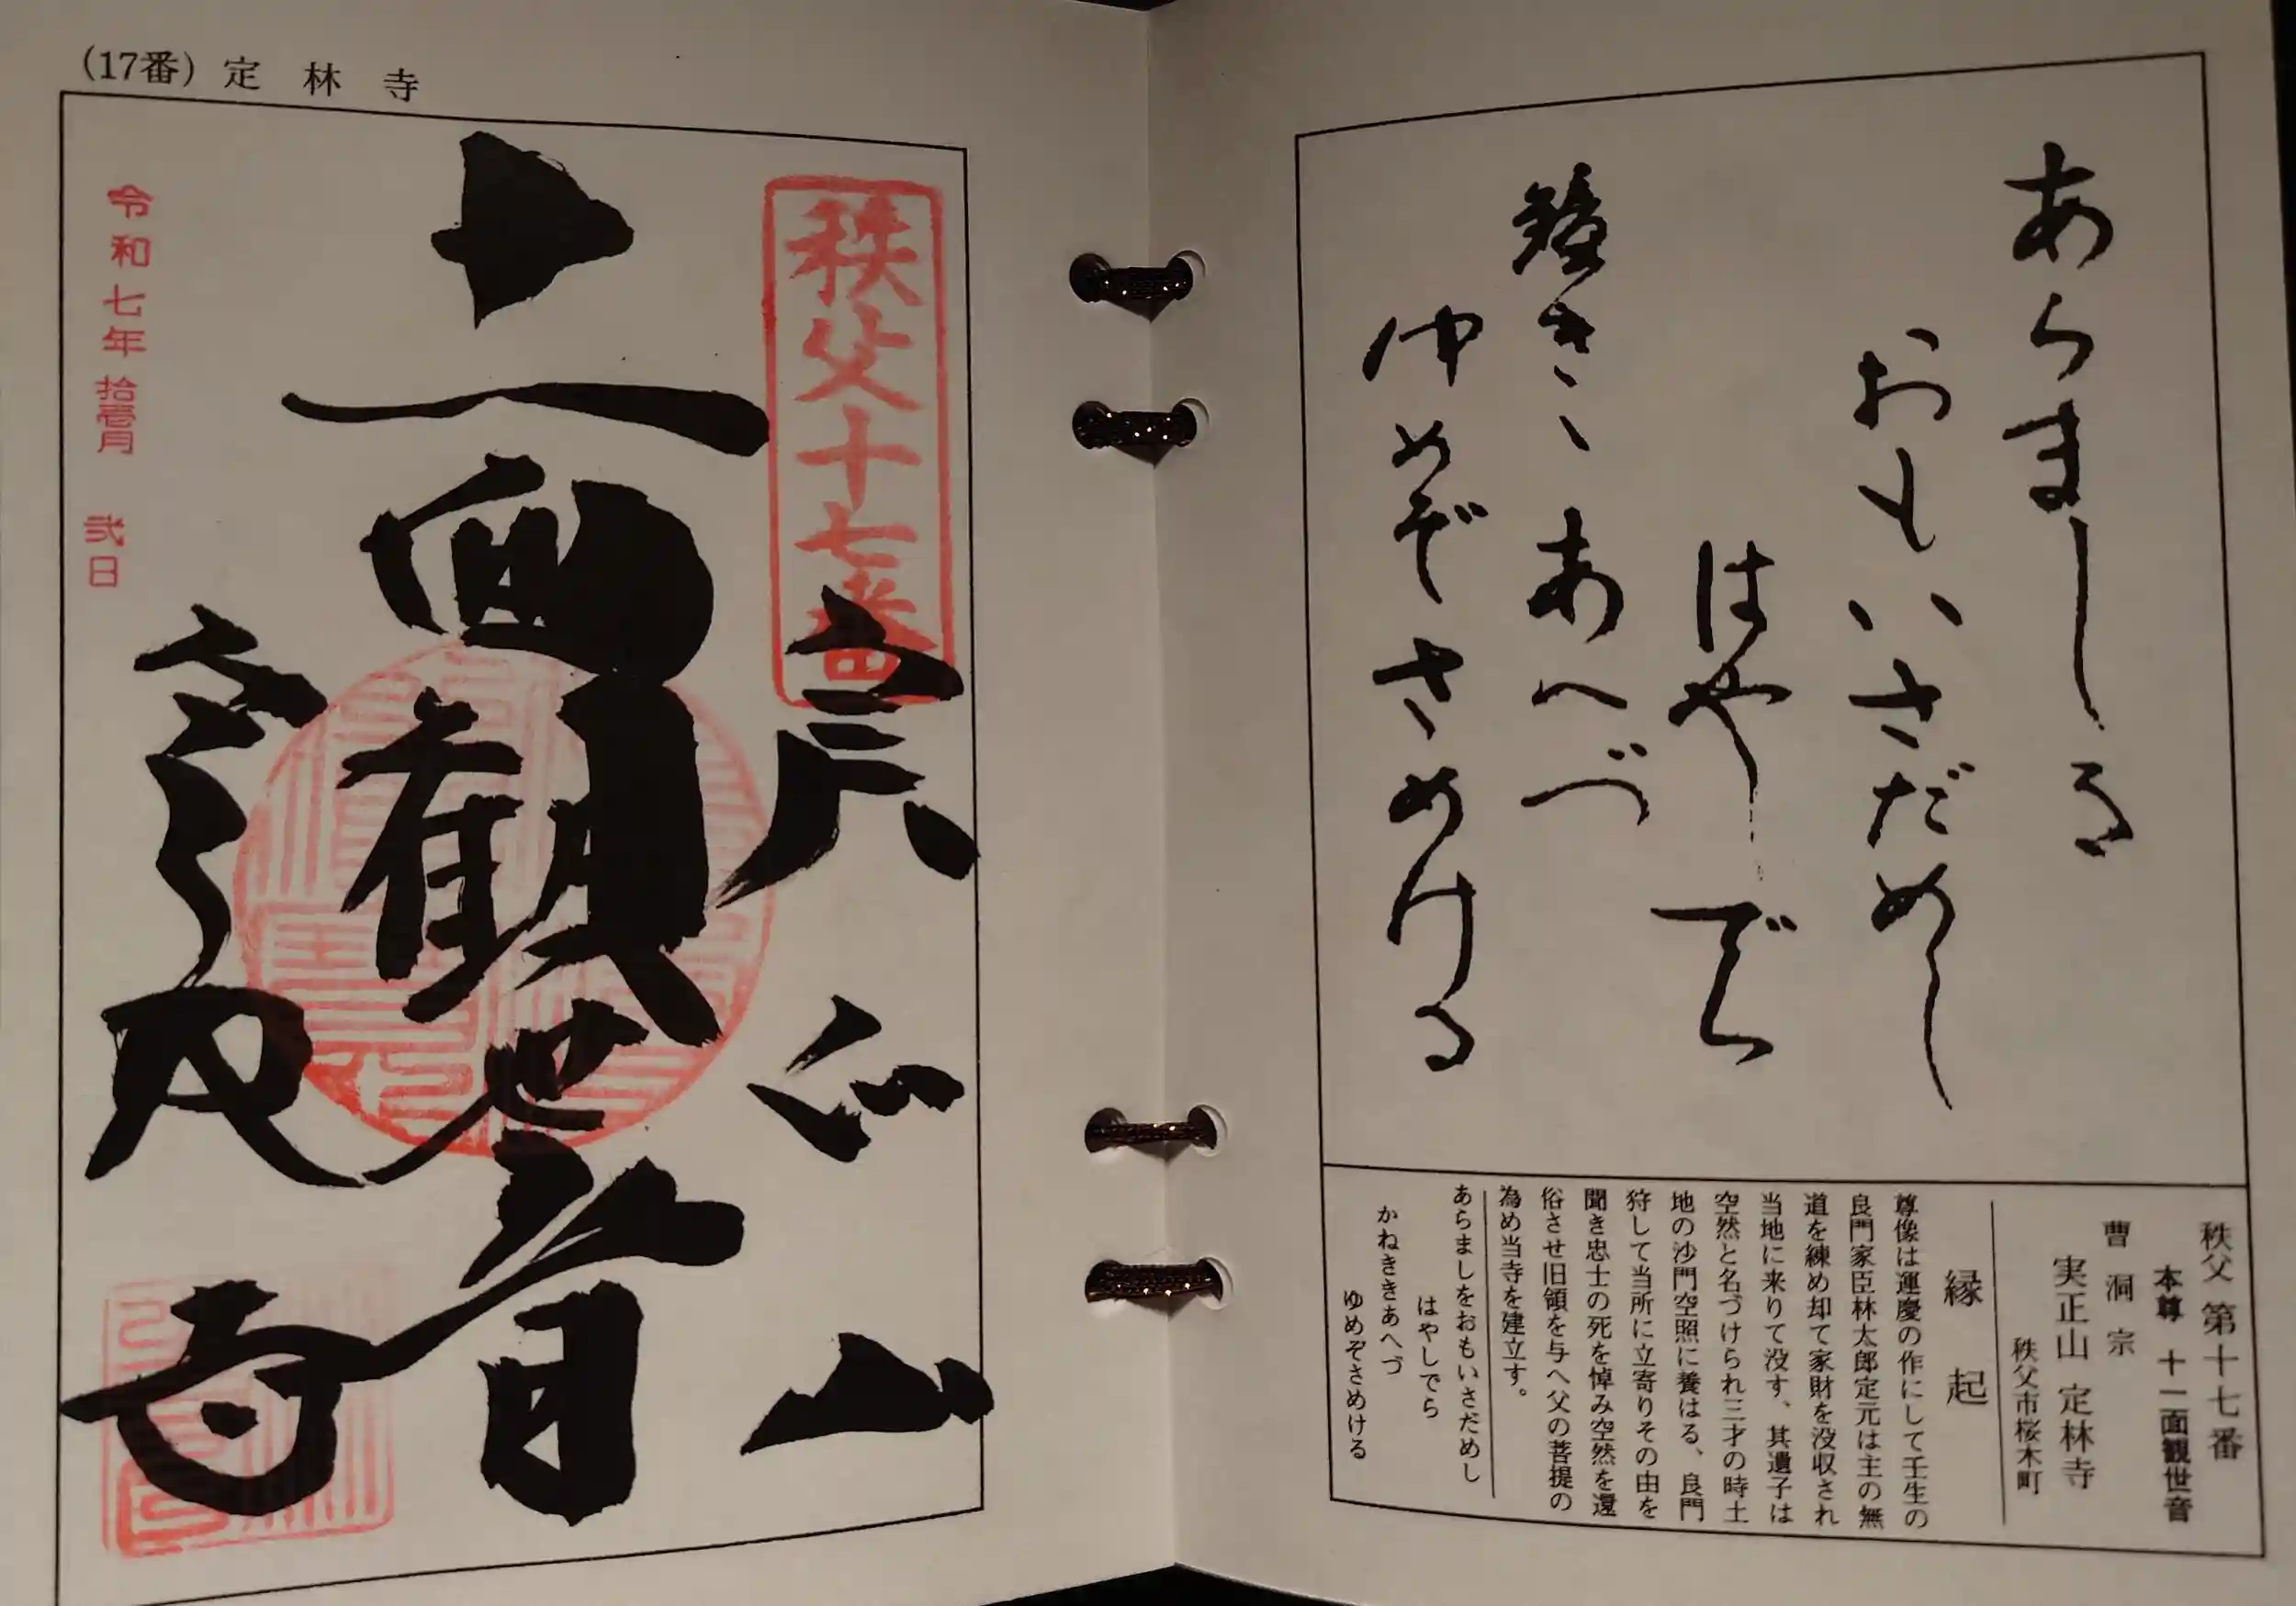 (17番) 定林寺
秩父十七番
実正山
十一面観世音
定林寺
令和七年拾壱月 弐日
あらましを
おもいさだめし
はやしでら
鐘きゝあへづ
ゆめぞさめける
秩父 第十七番
本尊 十一面観世音
曹洞宗
実正山 定林寺
秩父市桜木町
縁起
尊像は運慶の作にして壬生の
良門家臣林太郎定元は主の無
道を練め却て家財を没収され
当地に来りて没す、其遺子は
空然と名づけられ三才の時土
地の沙門空照に養はる、良門
狩して当所に立寄りその由を
聞き忠士の死を悼み空然を還
俗させ旧領を与へ父の菩提の
為め当寺を建立す。
あらましをおもいさだめし
はやしでら
かねききあへづ
ゆめぞさめける